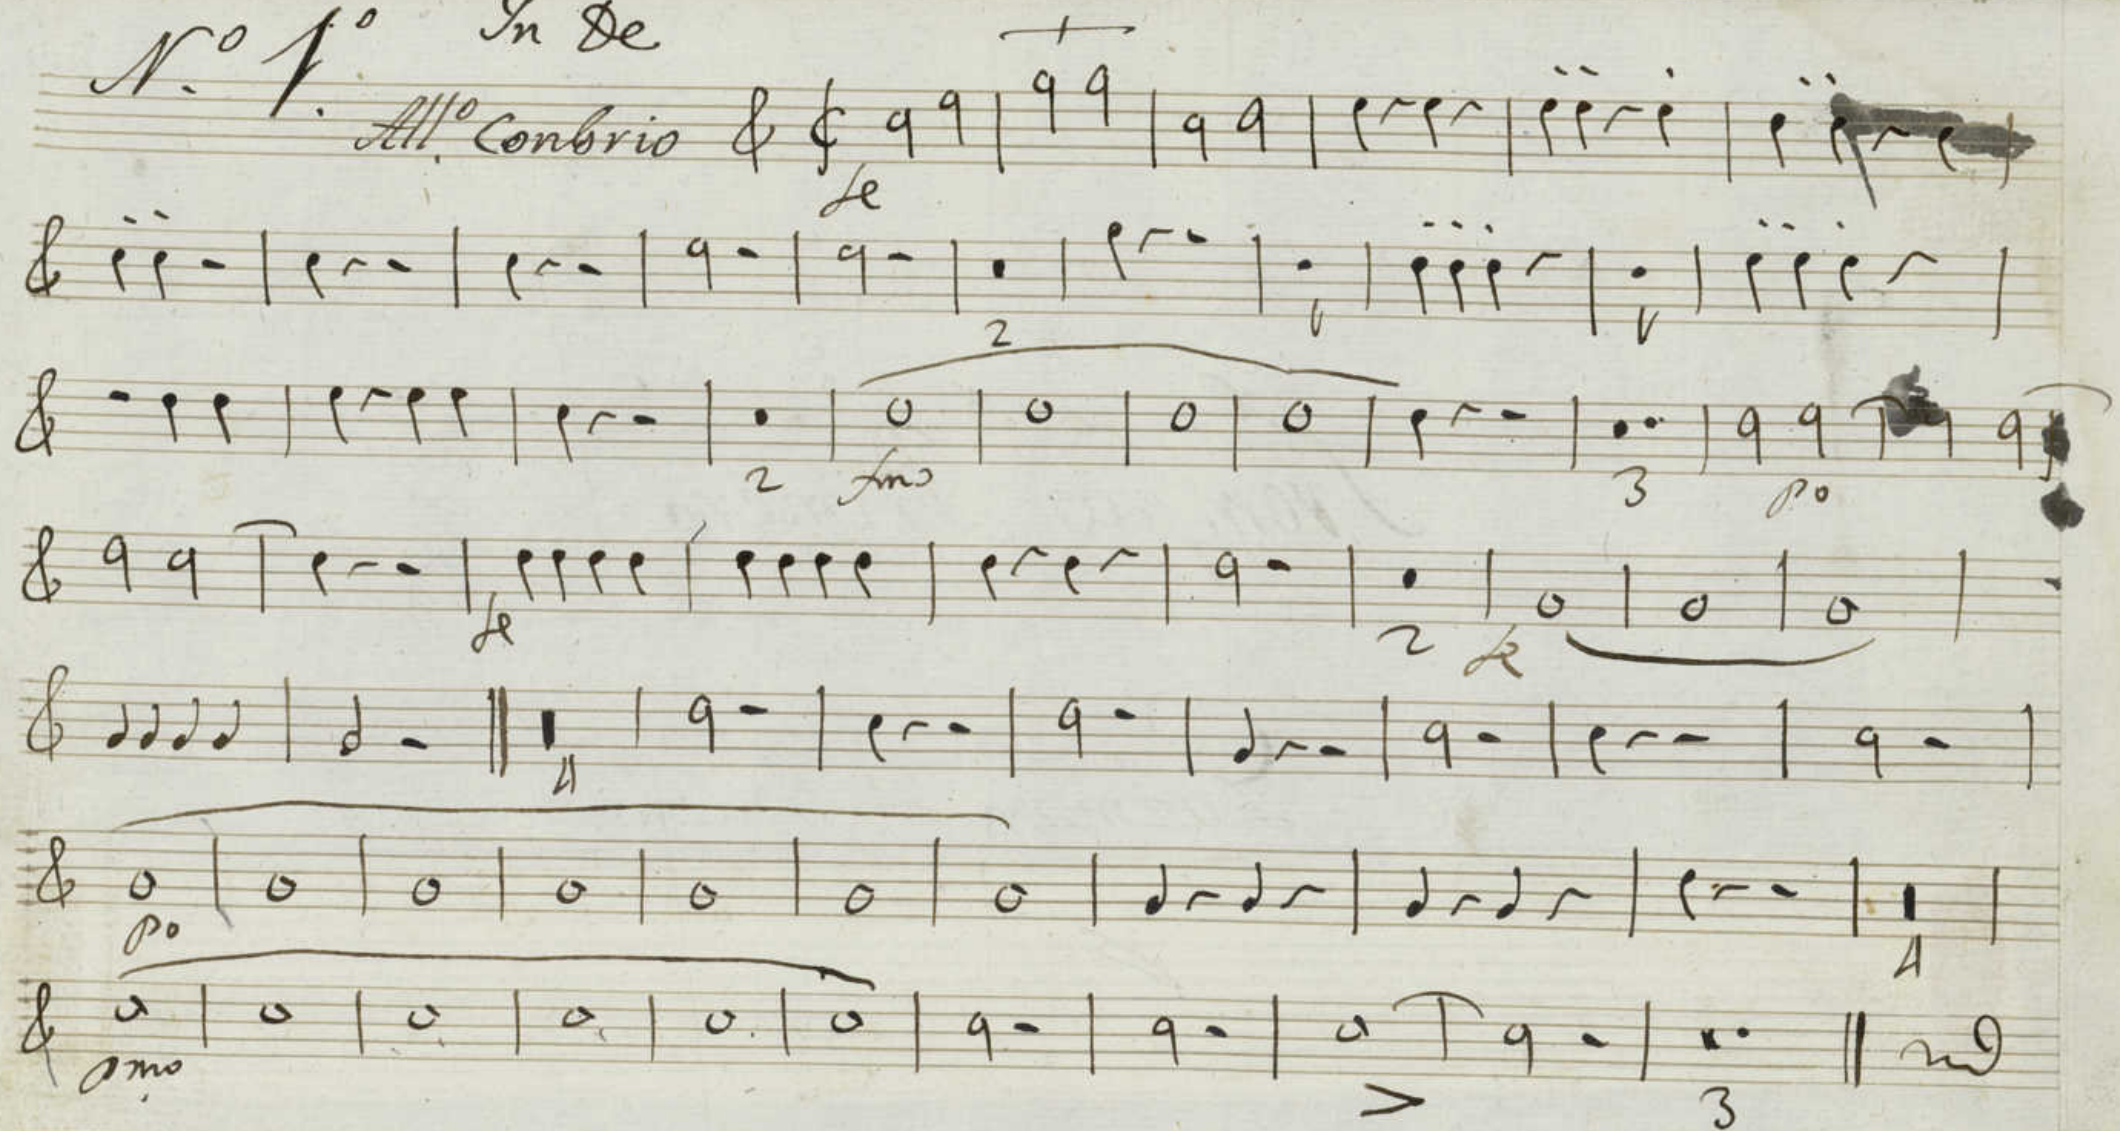 N.º 1.º In De
All.º Conbrio
fe
2
fmo
2 3 po
fe 2 fe
4
po
4
pmo
> 3